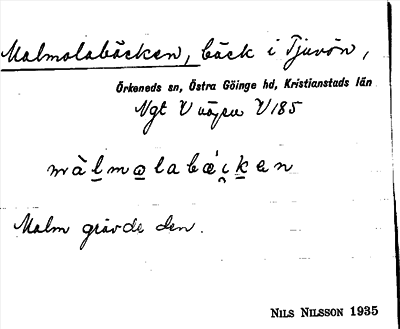 Malmolabäcken, bäck i Tjuvön,
Örkeneds sn, Östra Göinge hd, Kristianstads län
Ngt V vägen V185
Malm grävde den.
NILS NILSSON 1935